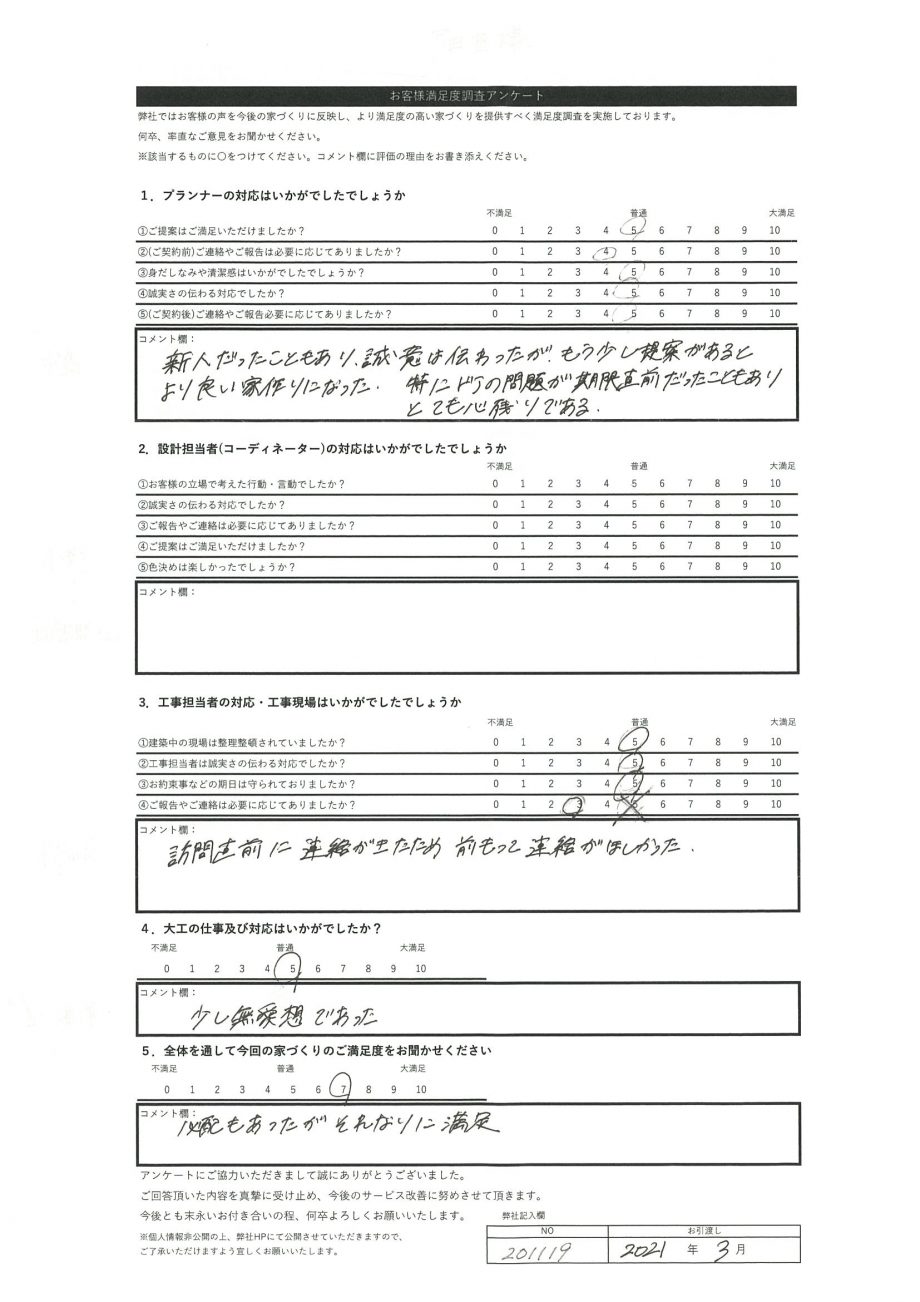 お客様満足度調査アンケート
弊社ではお客様の声を今後の家づくりに反映し、より満足度の高い家づくりを提供すべく満足度調査を実施しております。
何卒、率直なご意見をお聞かせください。
※該当するものに〇をつけてください。コメント欄に評価の理由をお書き添えください。
1．プランナーの対応はいかがでしたでしょうか
不満足 普通 大満足
①ご提案はご満足いただけましたか？ 0 1 2 3 4 5 6 7 8 9 10
②(ご契約前)ご連絡やご報告は必要に応じてありましたか？ 0 1 2 3 4 5 6 7 8 9 10
③身だしなみや清潔感はいかがでしたでしょうか？ 0 1 2 3 4 5 6 7 8 9 10
④誠実さの伝わる対応でしたか？ 0 1 2 3 4 5 6 7 8 9 10
⑤(ご契約後)ご連絡やご報告必要に応じてありましたか？ 0 1 2 3 4 5 6 7 8 9 10
コメント欄：
新人だったこともあり、誠意は伝わったが、もう少し提案があると
より良い家作りになった． 特にの問題が期限直前だったこともあり
とても心残りである．
2．設計担当者(コーディネーター)の対応はいかがでしたでしょうか
不満足 普通 大満足
①お客様の立場で考えた行動・言動でしたか？ 0 1 2 3 4 5 6 7 8 9 10
②誠実さの伝わる対応でしたか？ 0 1 2 3 4 5 6 7 8 9 10
③ご報告やご連絡は必要に応じてありましたか？ 0 1 2 3 4 5 6 7 8 9 10
④ご提案はご満足いただけましたか？ 0 1 2 3 4 5 6 7 8 9 10
⑤色決めは楽しかったでしょうか？ 0 1 2 3 4 5 6 7 8 9 10
コメント欄：
3．工事担当者の対応・工事現場はいかがでしたでしょうか
不満足 普通 大満足
①建築中の現場は整理整頓されていましたか？ 0 1 2 3 4 5 6 7 8 9 10
②工事担当者は誠実さの伝わる対応でしたか？ 0 1 2 3 4 5 6 7 8 9 10
③お約束事などの期日は守られておりましたか？ 0 1 2 3 4 5 6 7 8 9 10
④ご報告やご連絡は必要に応じてありましたか？ 0 1 2 3 4 5 6 7 8 9 10
コメント欄：
訪問直前に 連絡がきたため 前もって連絡がほしかった．
4．大工の仕事及び対応はいかがでしたか？
不満足 普通 大満足
0 1 2 3 4 5 6 7 8 9 10
コメント欄：
少し無愛想であった
5．全体を通して今回の家づくりのご満足度をお聞かせください
不満足 普通 大満足
0 1 2 3 4 5 6 7 8 9 10
コメント欄：
心配もあったがそれなりに満足
アンケートにご協力いただきまして誠にありがとうございました。
ご回答頂いた内容を真摯に受け止め、今後のサービス改善に努めさせて頂きます。
今後とも末永いお付き合いの程、何卒よろしくお願いいたします。 弊社記入欄
※個人情報非公開の上、弊社HPにて公開させていただきますので、
ご了承いただけますよう宜しくお願いいたします。
NO お引渡し
201119 2021 年 3 月